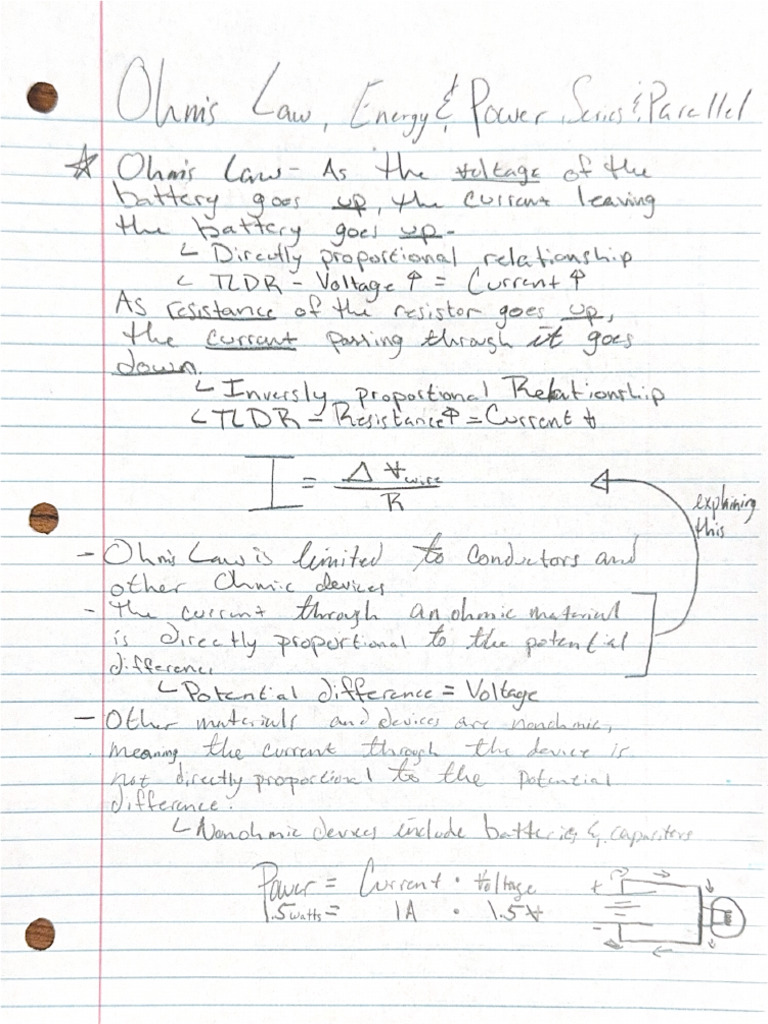 Ohm's Law, Energy & Power, Series & Parallel
☆ Ohm's Law - As the voltage of the
battery goes up, the current leaving
the battery goes up.
↳ Directly proportional relationship
↳ TLDR - Voltage ↑ = Current ↑
As resistance of the resistor goes up,
the current passing through it goes
down.
↳ Inversly proportional Relationship
↳ TLDR - Resistance ↑ = Current ↓
I = ΔV wire / R
explaining
this
- Ohm's Law is limited to conductors and
other Ohmic devices
- The current through an ohmic material
is directly proportional to the potential
difference.
↳ Potential difference = Voltage
- Other materials and devices are nonohmic,
meaning the current through the device is
not directly proportional to the potential
difference.
↳ Nonohmic devices include batteries & capaciters
Power = Current · Voltage
1.5 watts = 1A · 1.5V
+
-